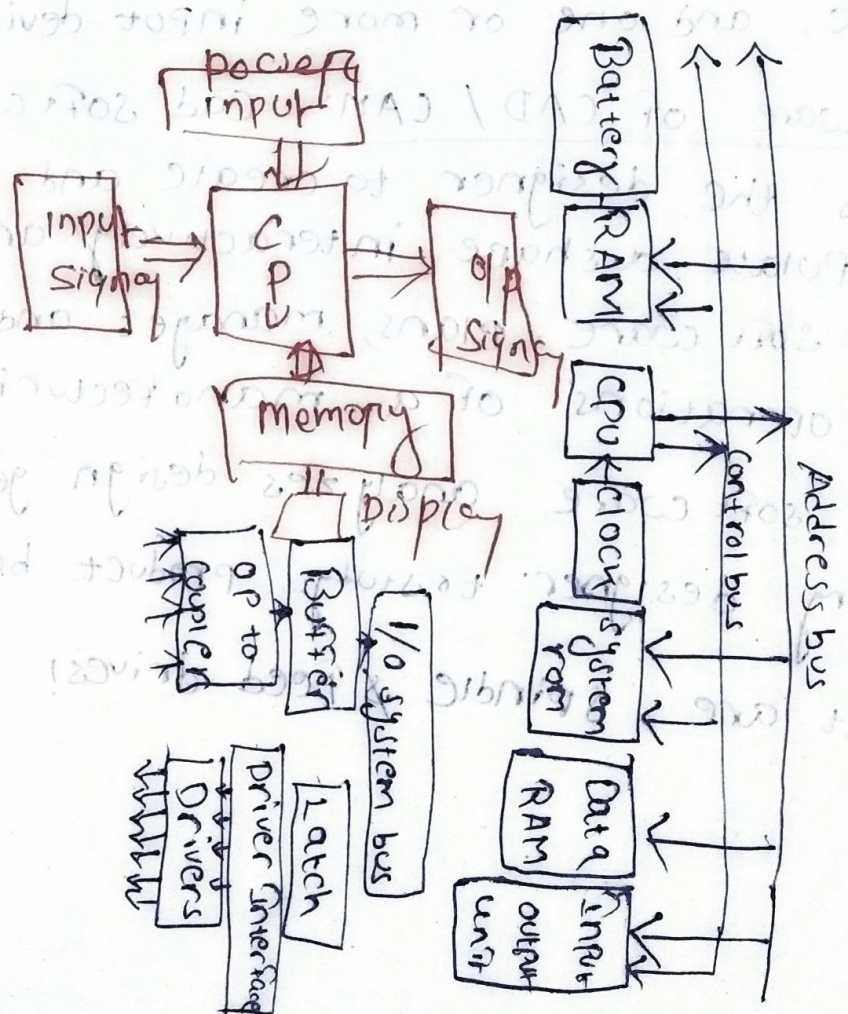 input
CPU
Input
Signal
O/P
Signal
memory
Display
Battery
RAM
CPU
Clock
system
rom
Data
RAM
Input
output
unit
control bus
Address bus
I/O system bus
Buffer
opto
couplers
Latch
Driver Interface
Drivers